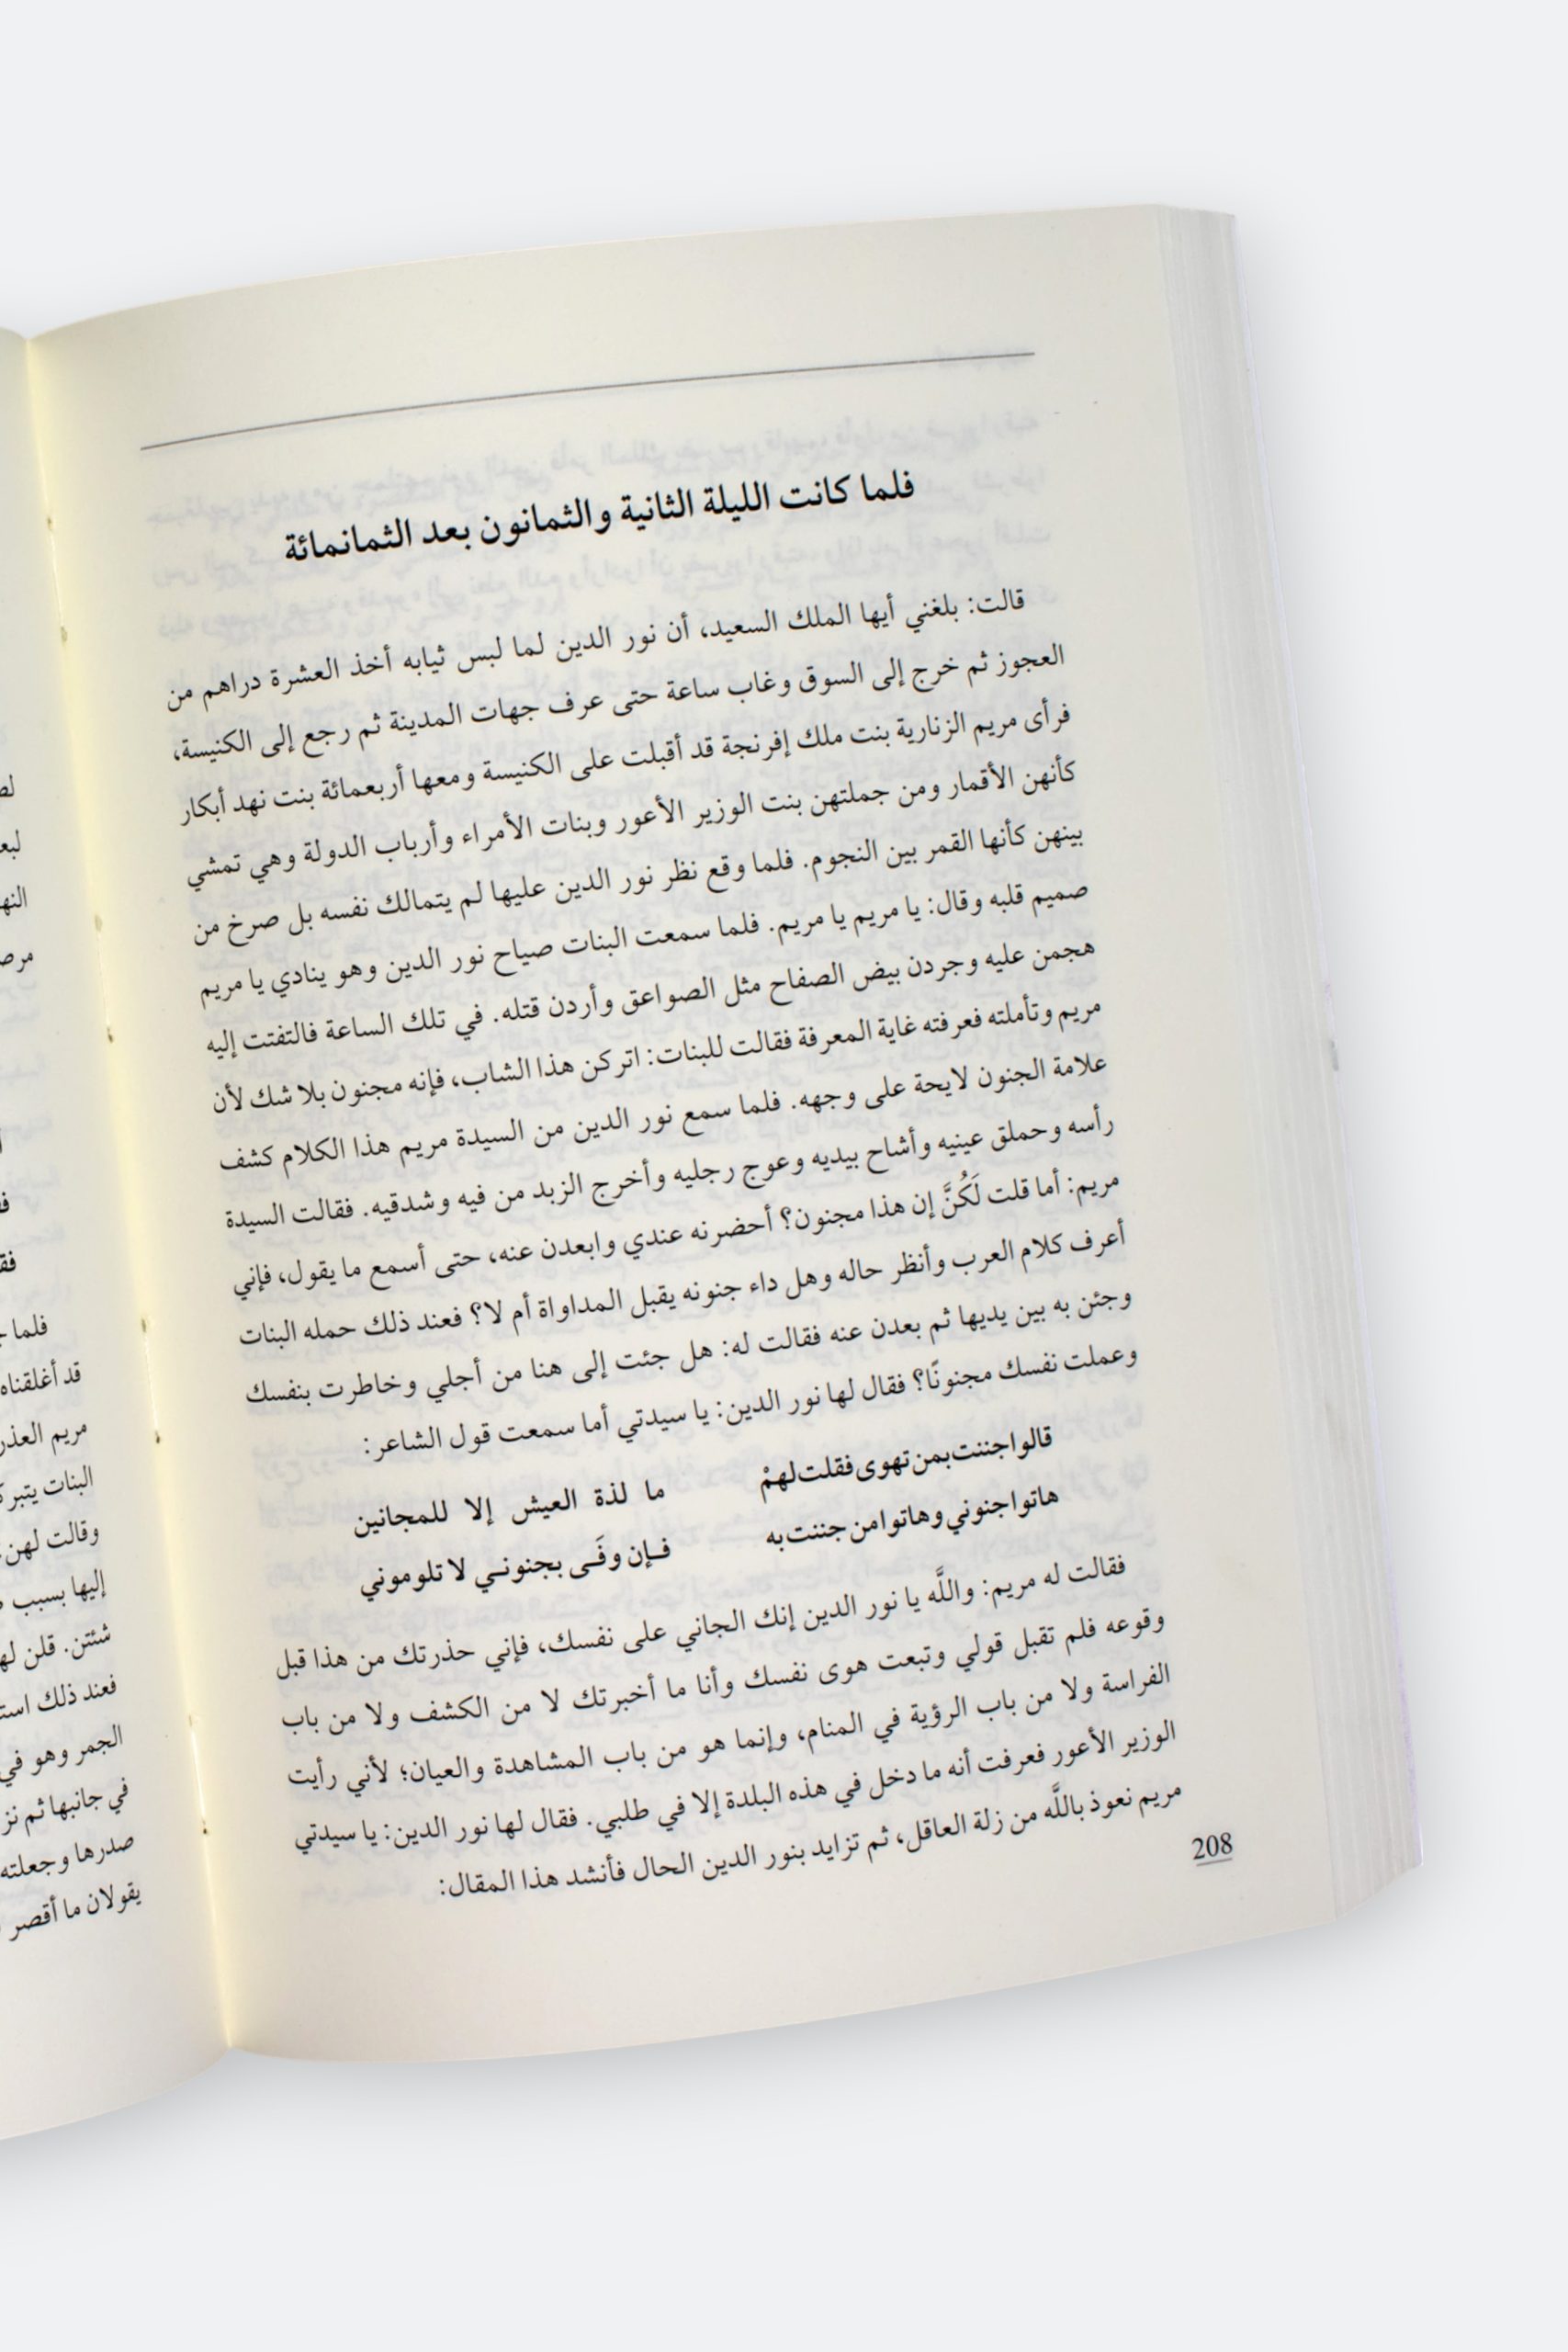 فلما كانت الليلة الثانية والثمانون بعد الثمانمائة
قالت: بلغني أيها الملك السعيد، أن نور الدين لما لبس ثيابه أخذ العشرة دراهم من
العجوز ثم خرج إلى السوق وغاب ساعة حتى عرف جهات المدينة ثم رجع إلى الكنيسة،
فرأى مريم الزنارية بنت ملك إفرنجة قد أقبلت على الكنيسة ومعها أربعمائة بنت نهد أبكار
كأنهن الأقمار ومن جملتهن بنت الوزير الأعور وبنات الأمراء وأرباب الدولة وهي تمشي
بينهن كأنها القمر بين النجوم. فلما وقع نظر نور الدين عليها لم يتمالك نفسه بل صرخ من
صميم قلبه وقال: يا مريم يا مريم. فلما سمعت البنات صياح نور الدين وهو ينادي يا مريم
هجمن عليه وجردن بيض الصفاح مثل الصواعق وأردن قتله. في تلك الساعة فالتفتت إليه
مريم وتأملته فعرفته غاية المعرفة فقالت للبنات: اتركن هذا الشاب، فإنه مجنون بلا شك لأن
علامة الجنون لايحة على وجهه. فلما سمع نور الدين من السيدة مريم هذا الكلام كشف
رأسه وحملق عينيه وأشاح بيديه وعوج رجليه وأخرج الزبد من فيه وشدقيه. فقالت السيدة
مريم: أما قلت لَكُنَّ إن هذا مجنون؟ أحضرنه عندي وابعدن عنه، حتى أسمع ما يقول، فإني
أعرف كلام العرب وأنظر حاله وهل داء جنونه يقبل المداواة أم لا؟ فعند ذلك حمله البنات
وجئن به بين يديها ثم بعدن عنه فقالت له: هل جئت إلى هنا من أجلي وخاطرت بنفسك
وعملت نفسك مجنونًا؟ فقال لها نور الدين: يا سيدتي أما سمعت قول الشاعر:
قالوا جننت بمن تهوى فقلت لهمْ ما لذة العيش إلا للمجانين
هاتوا جنوني وهاتوا من جننت به فإن وفَى بجنوني لا تلوموني
فقالت له مريم: واللَّه يا نور الدين إنك الجاني على نفسك، فإني حذرتك من هذا قبل
وقوعه فلم تقبل قولي وتبعت هوى نفسك وأنا ما أخبرتك لا من الكشف ولا من باب
الفراسة ولا من باب الرؤية في المنام، وإنما هو من باب المشاهدة والعيان؛ لأني رأيت
الوزير الأعور فعرفت أنه ما دخل في هذه البلدة إلا في طلبي. فقال لها نور الدين: يا سيدتي
مريم نعوذ باللَّه من زلة العاقل، ثم تزايد بنور الدين الحال فأنشد هذا المقال:
208
فلما
قد أغلقناه
مريم
البنات
وقالت لهن
إليها بسبب
شئتن. قلن
فعند ذلك
الجمر وهو في
في جانبها ثم
صدرها وجعلته
يقولان ما أقصر